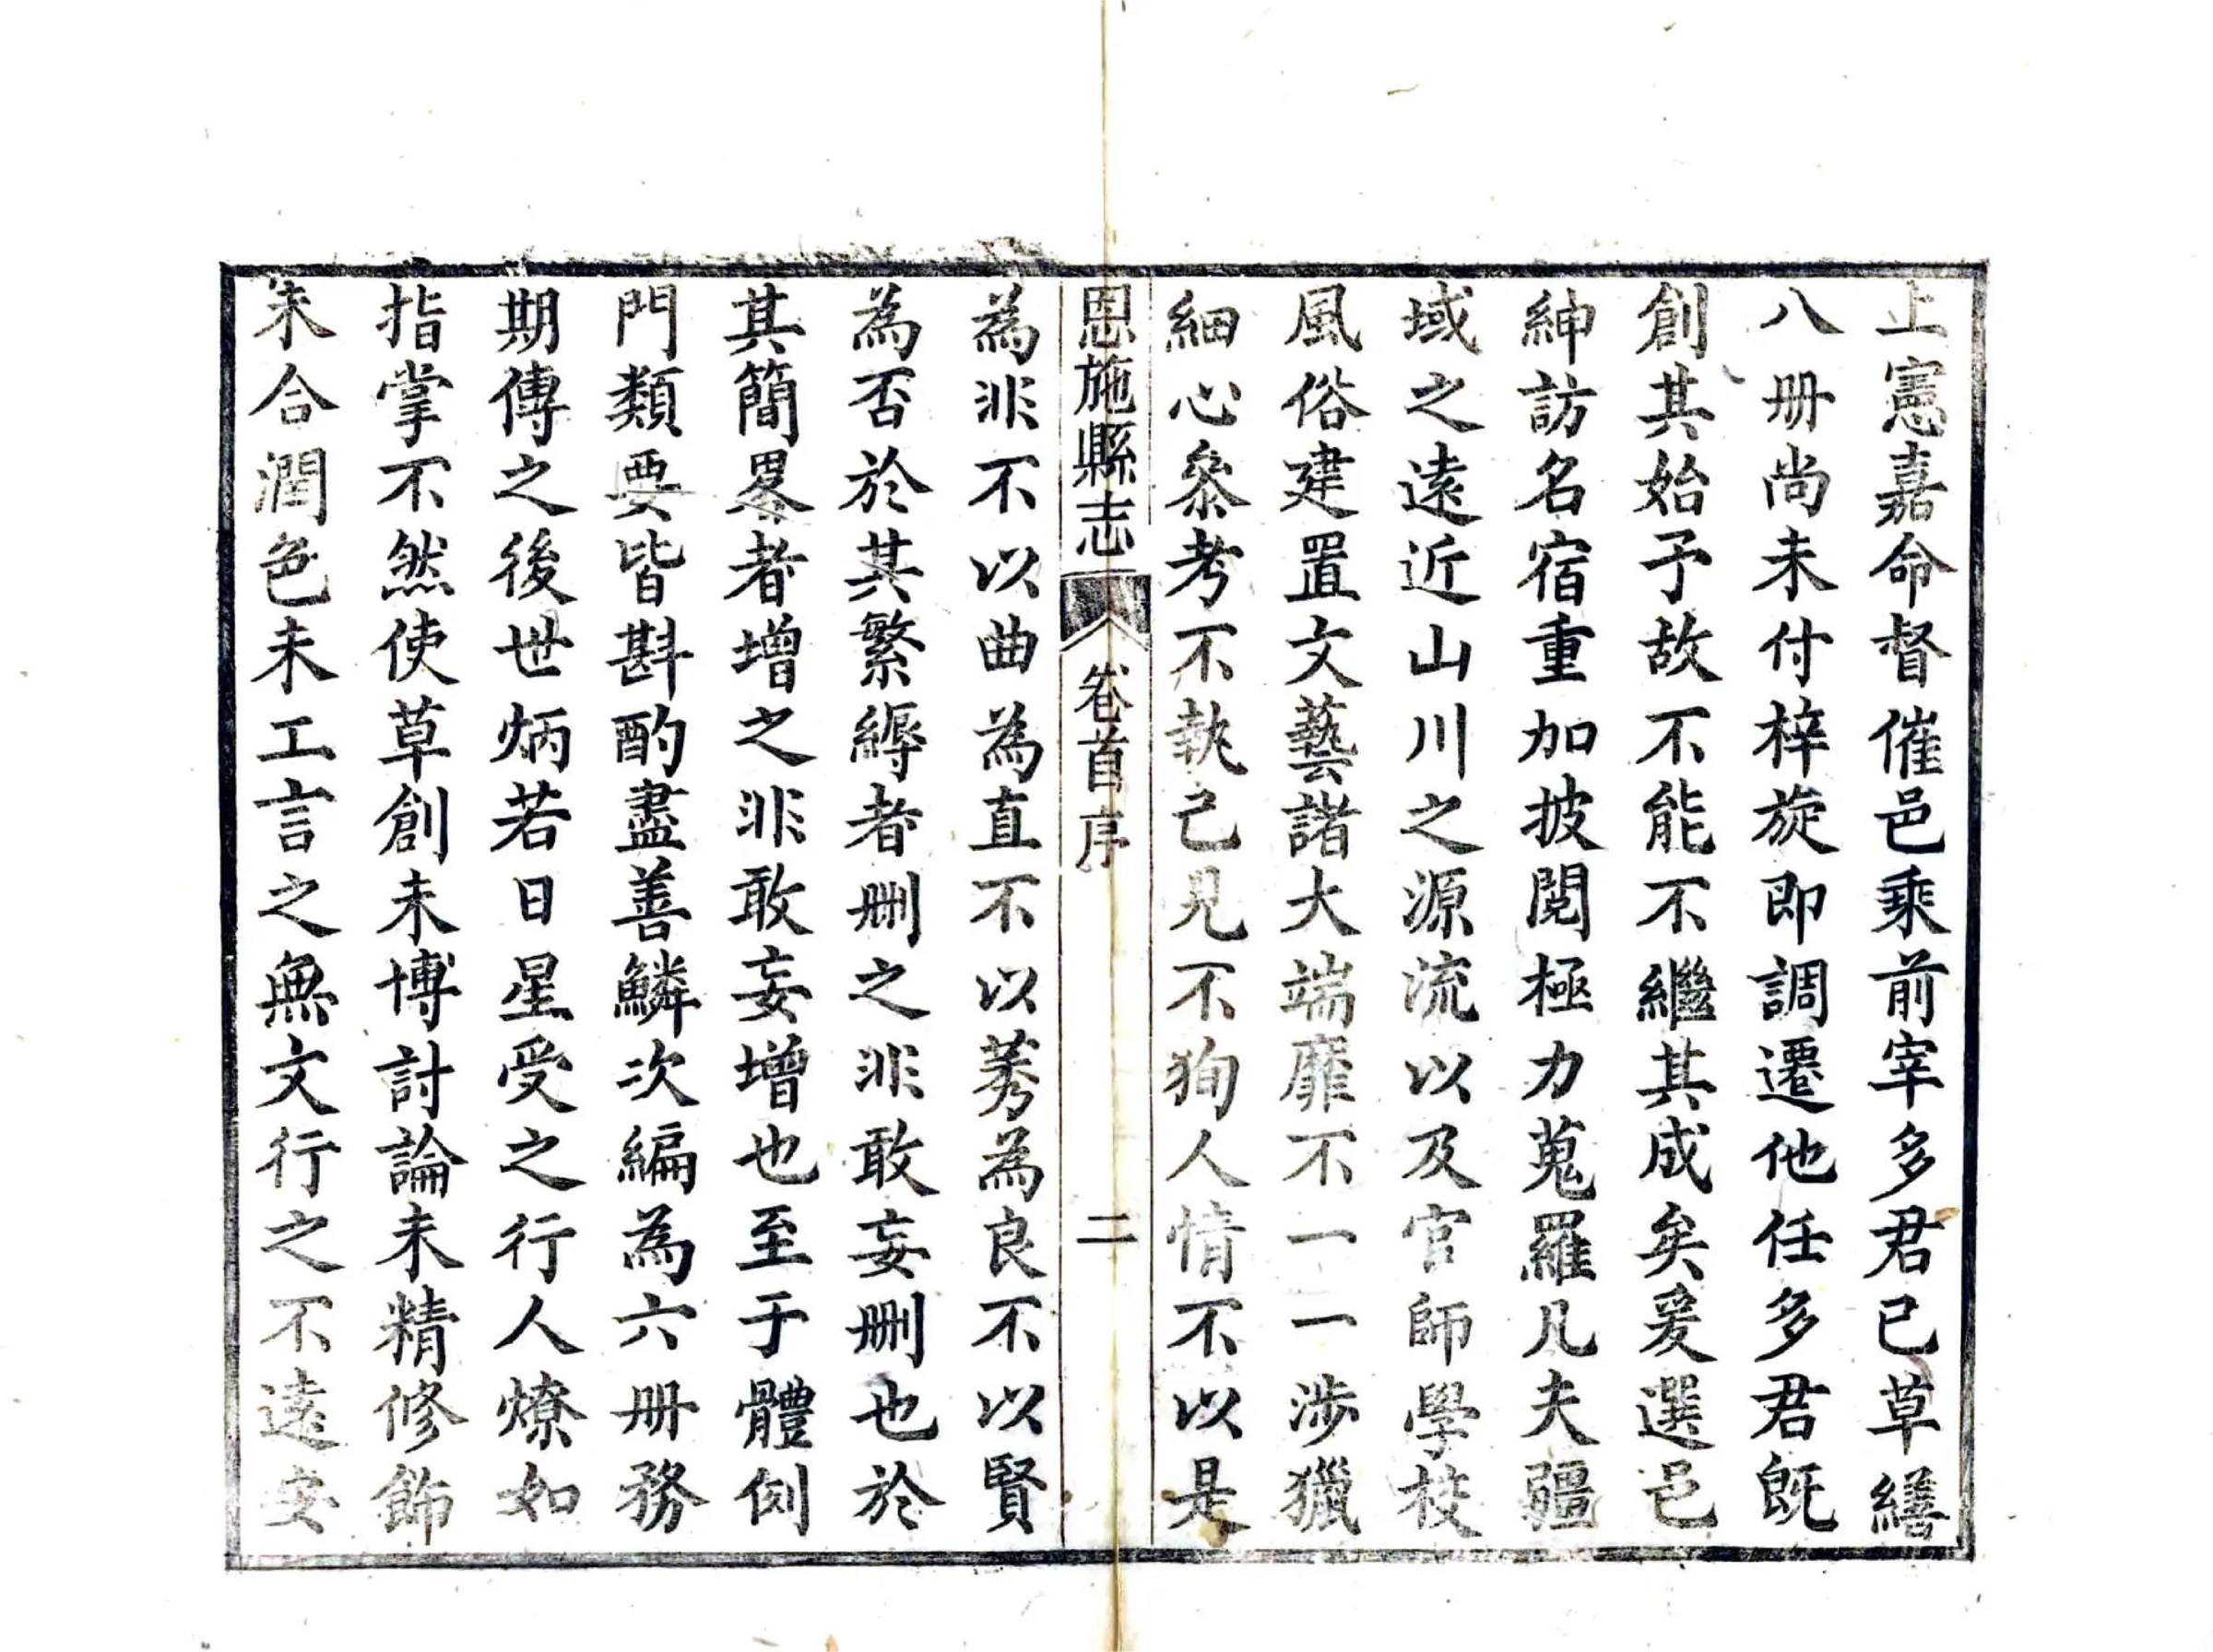 上憲嘉命督催邑乘前宰多君已草繕
八册尚未付梓旋即調遷他任多君既
創其始予故不能不繼其成矣爰選邑
紳訪名宿重加披閱極力蒐羅凡夫疆
域之遠近山川之源流以及官師學校
風俗建置文藝諸大端靡不一一涉獵
細心叅考不執己見不狥人情不以是
恩施縣志
卷首序
二
為非不以曲為直不以莠為良不以賢
為否於其繁縟者删之非敢妄删也於
其簡畧者增之非敢妄增也至于體例
門類要皆斟酌盡善鱗次編為六册務
期傳之後世炳若日星受之行人燎如
指掌不然使草創未博討論未精修飾
未合潤色未工言之無文行之不遠安